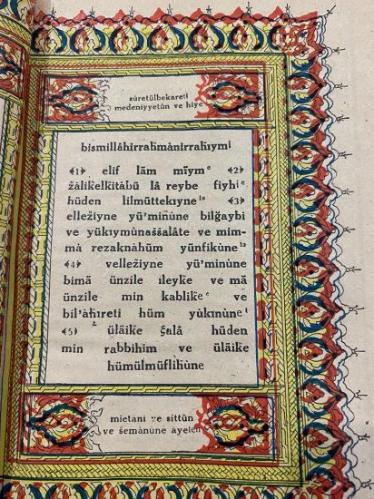 sûretülbekareti
medeniyyetün ve hiye
bismillâhirrahmânirrahıymi
﴾1﴿ elif lâm mîym ﴾2﴿
žâlikelkitâbü lâ reybe fiyhi
hüden lilmüttekıyne ﴾3﴿
elležiyne yü'minùne bilğaybi
ve yükıymùnaššalâte ve mim-
mâ rezaknâhüm yünfikùne
﴾4﴿ velležiyne yü'minùne
bimâ ünzile ileyke ve mâ
ünzile min kablike ve
bil'âhıreti hüm yùkınùne
﴾5﴿ ülâike alâ hüden
min rabbihim ve ülâike
hümülmüflihùne
mietani ve sittûn
ve šemânune âyeich